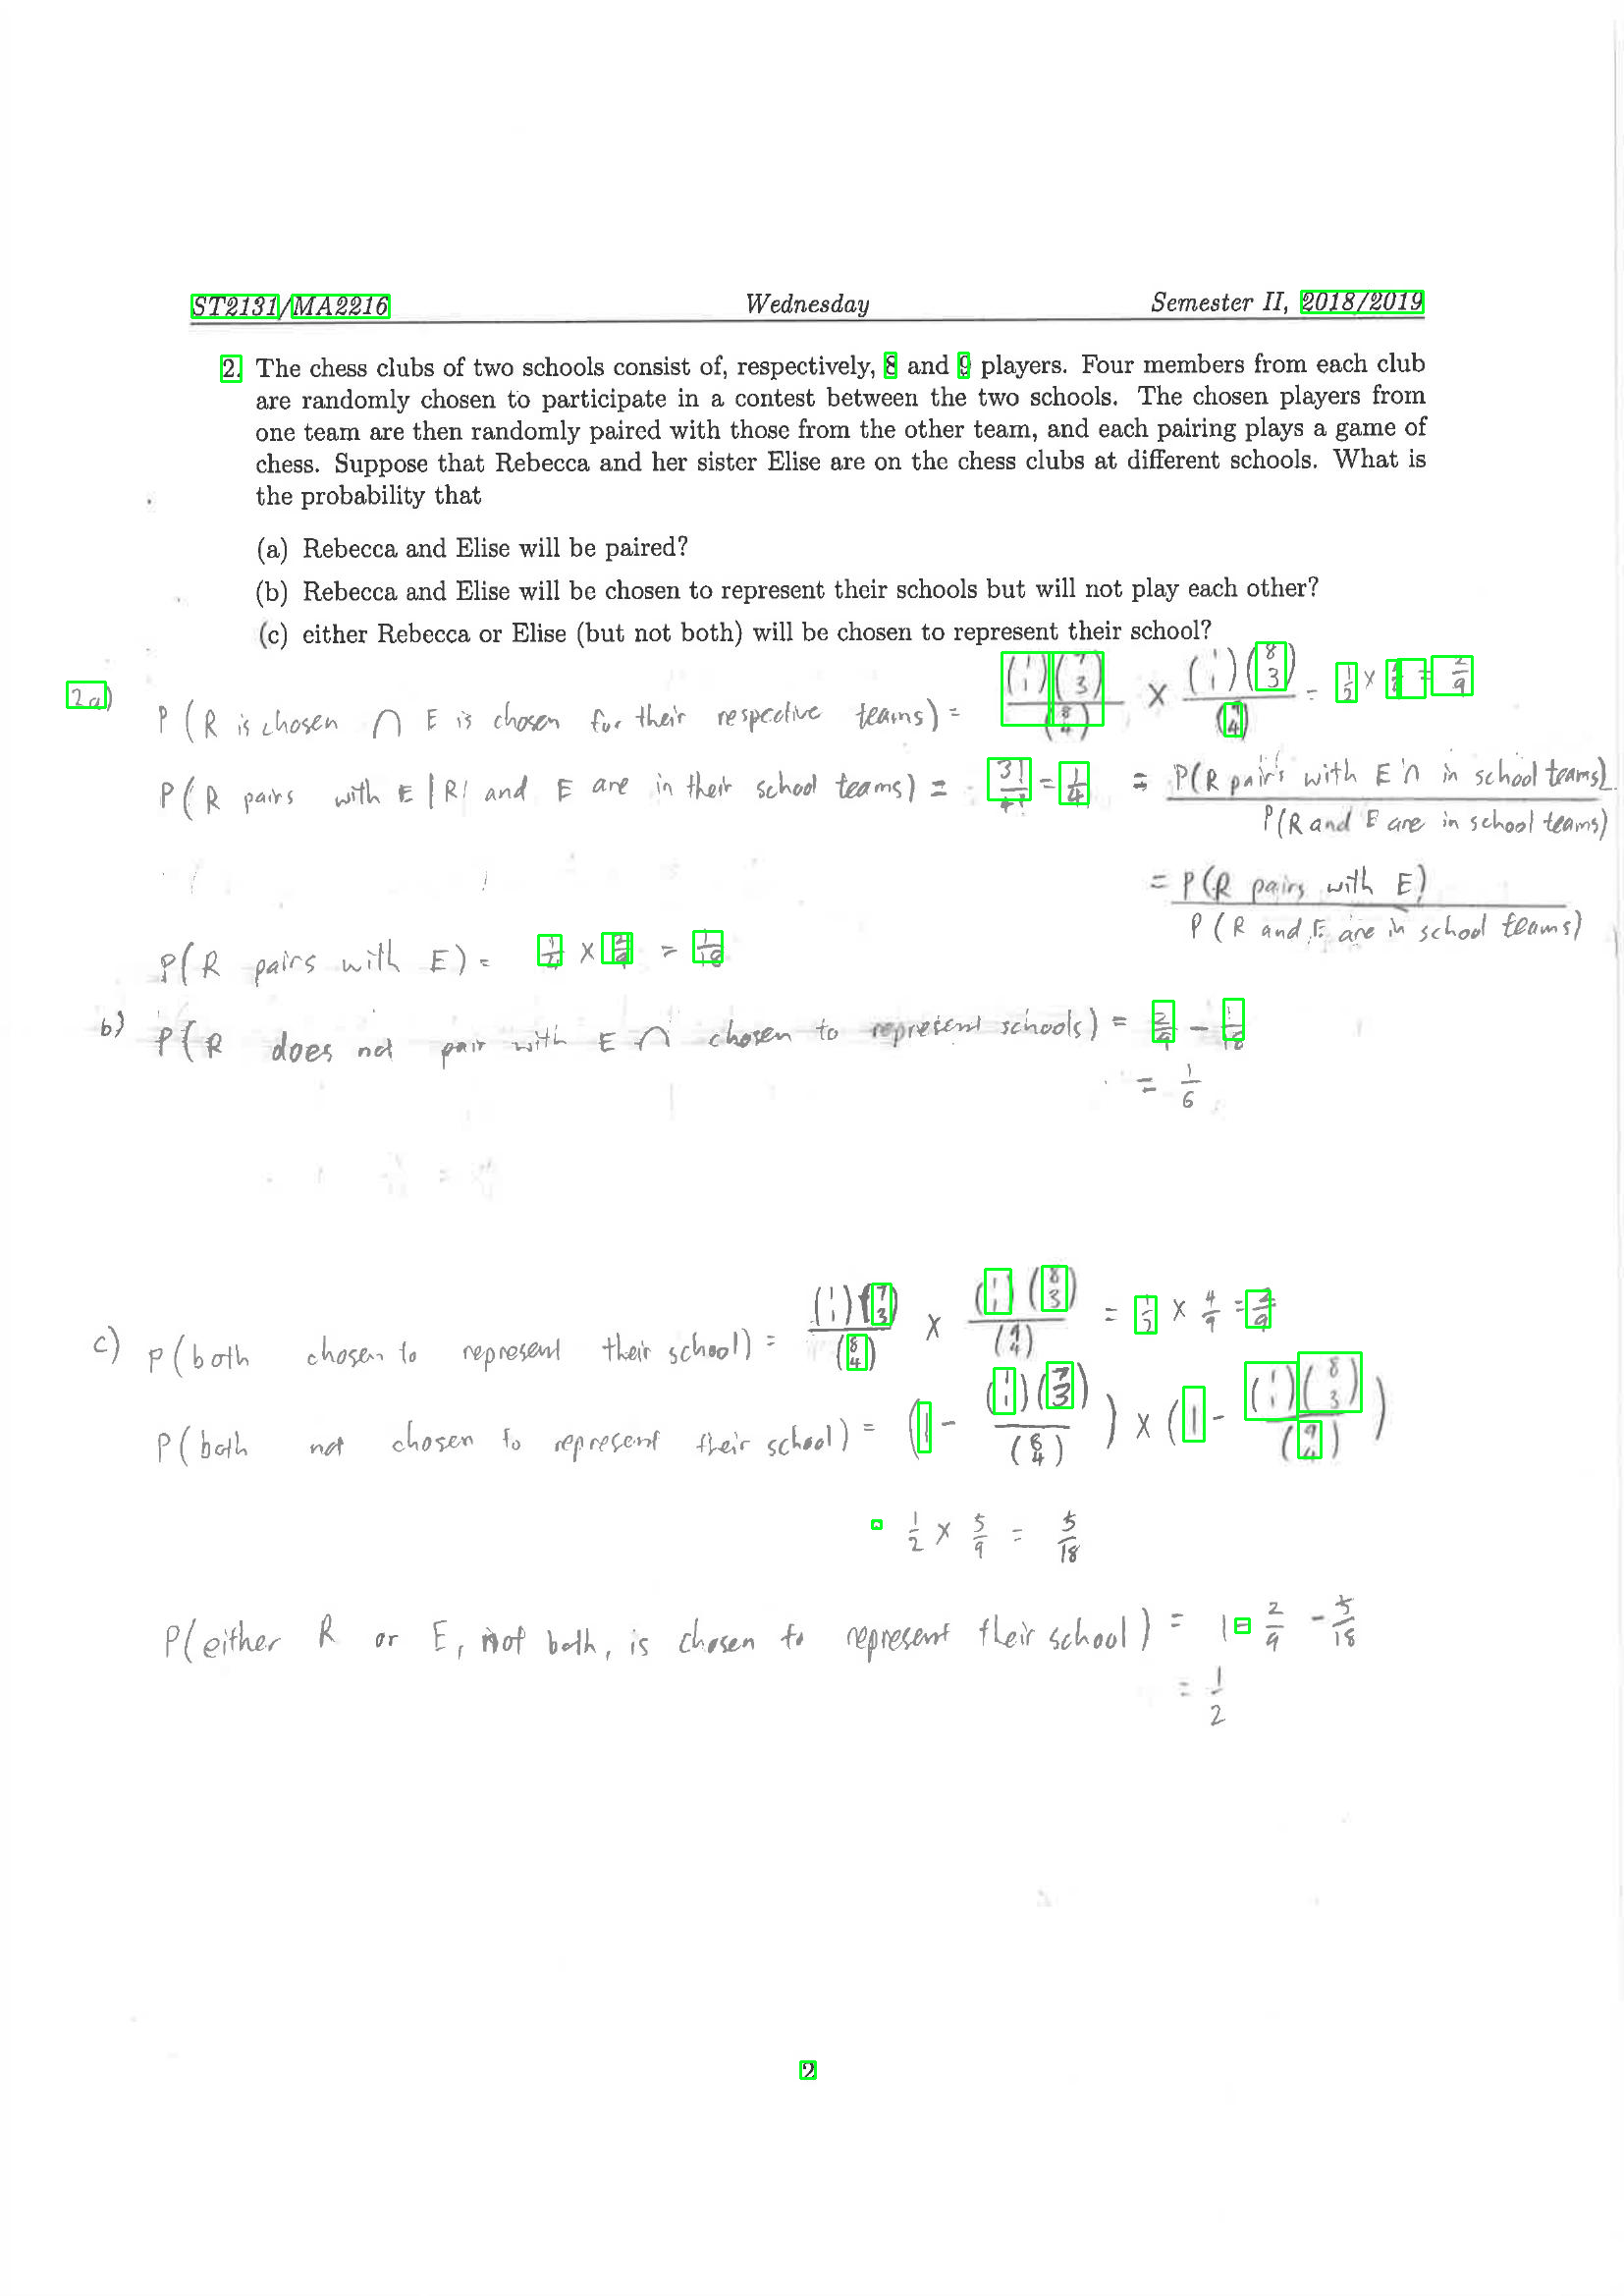 ST2131/MA2216 Wednesday Semester II, 2018/2019
2. The chess clubs of two schools consist of, respectively, 8 and 9 players. Four members from each club
are randomly chosen to participate in a contest between the two schools. The chosen players from
one team are then randomly paired with those from the other team, and each pairing plays a game of
chess. Suppose that Rebecca and her sister Elise are on the chess clubs at different schools. What is
the probability that
(a) Rebecca and Elise will be paired?
(b) Rebecca and Elise will be chosen to represent their schools but will not play each other?
(c) either Rebecca or Elise (but not both) will be chosen to represent their school?
2a) P(R is chosen ∩ E is chosen for their respective teams) = (1 1)(7 3)/(8 4) × (1 1)(8 3)/(9 4) = 1/2 × = 2/9
P(R pairs with E | R and E are in their school teams) = 3!/4! = 1/4 = P(R pairs with E ∩ in school teams)/P(R and E are in school teams)
= P(R pairs with E)/P(R and E are in school teams)
P(R pairs with E) = 1/4 × 2/9 = 1/18
b) P(R does not pair with E ∩ chosen to represent schools) = 2/9 - 1/18
= 1/6
c) P(both chosen to represent their school) = (1 1)(7 3)/(8 4) × (1 1)(8 3)/(9 4) = 1/2 × 4/9 = 2/9
P(both not chosen to represent their school) = (1 - (1 1)(7 3)/(8 4)) × (1 - (1 1)(8 3)/(9 4))
= 1/2 × 5/9 = 5/18
P(either R or E, not both, is chosen to represent their school) = 1 - 2/9 - 5/18
= 1/2
2